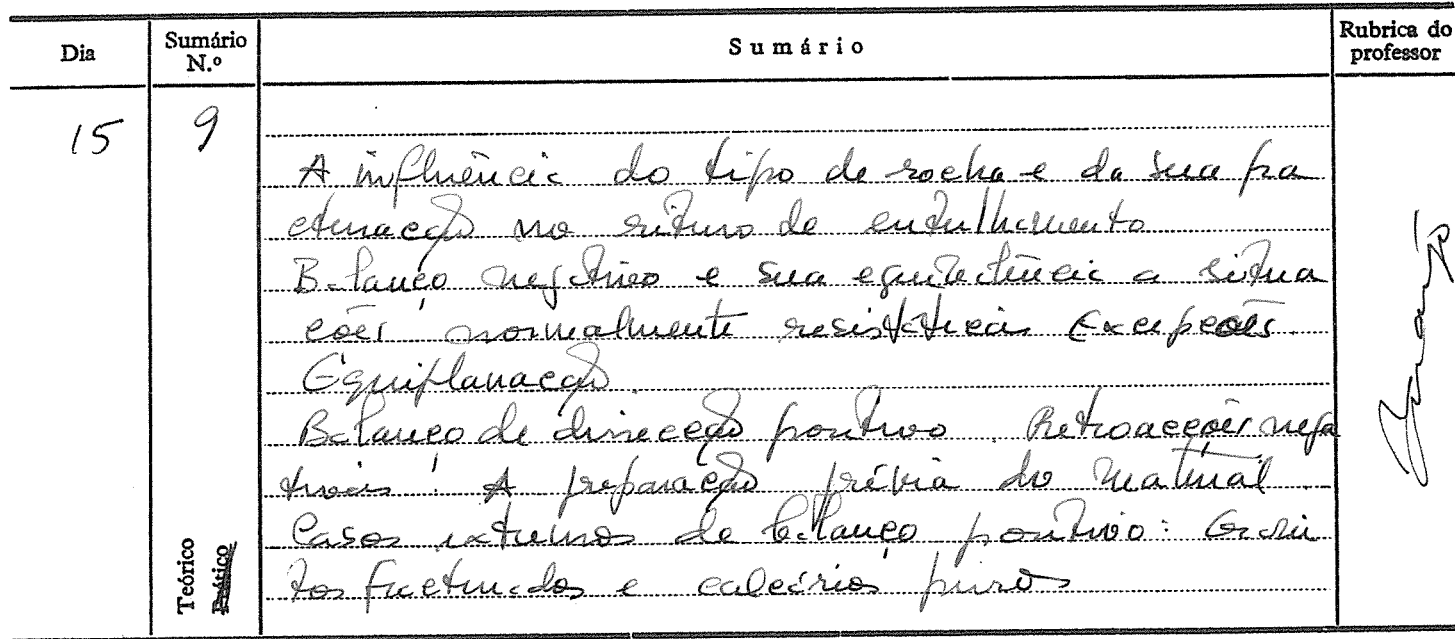 Dia
Sumário N.º
Sumário
Rubrica do professor
15
9
A influência do tipo de rocha e da sua fra
cturação no ritmo de entulhamento
Balanço negativo e sua equivalência a situa
ções normalmente resistáticas Excepções.
Equiplanação.
Balanço de direcção positivo. Retroacções nega
tivas: A preparação prévia do material.
Casos extremos de balanço positivo: Grani
tos fracturados e calcários puros
Teórico
Prático